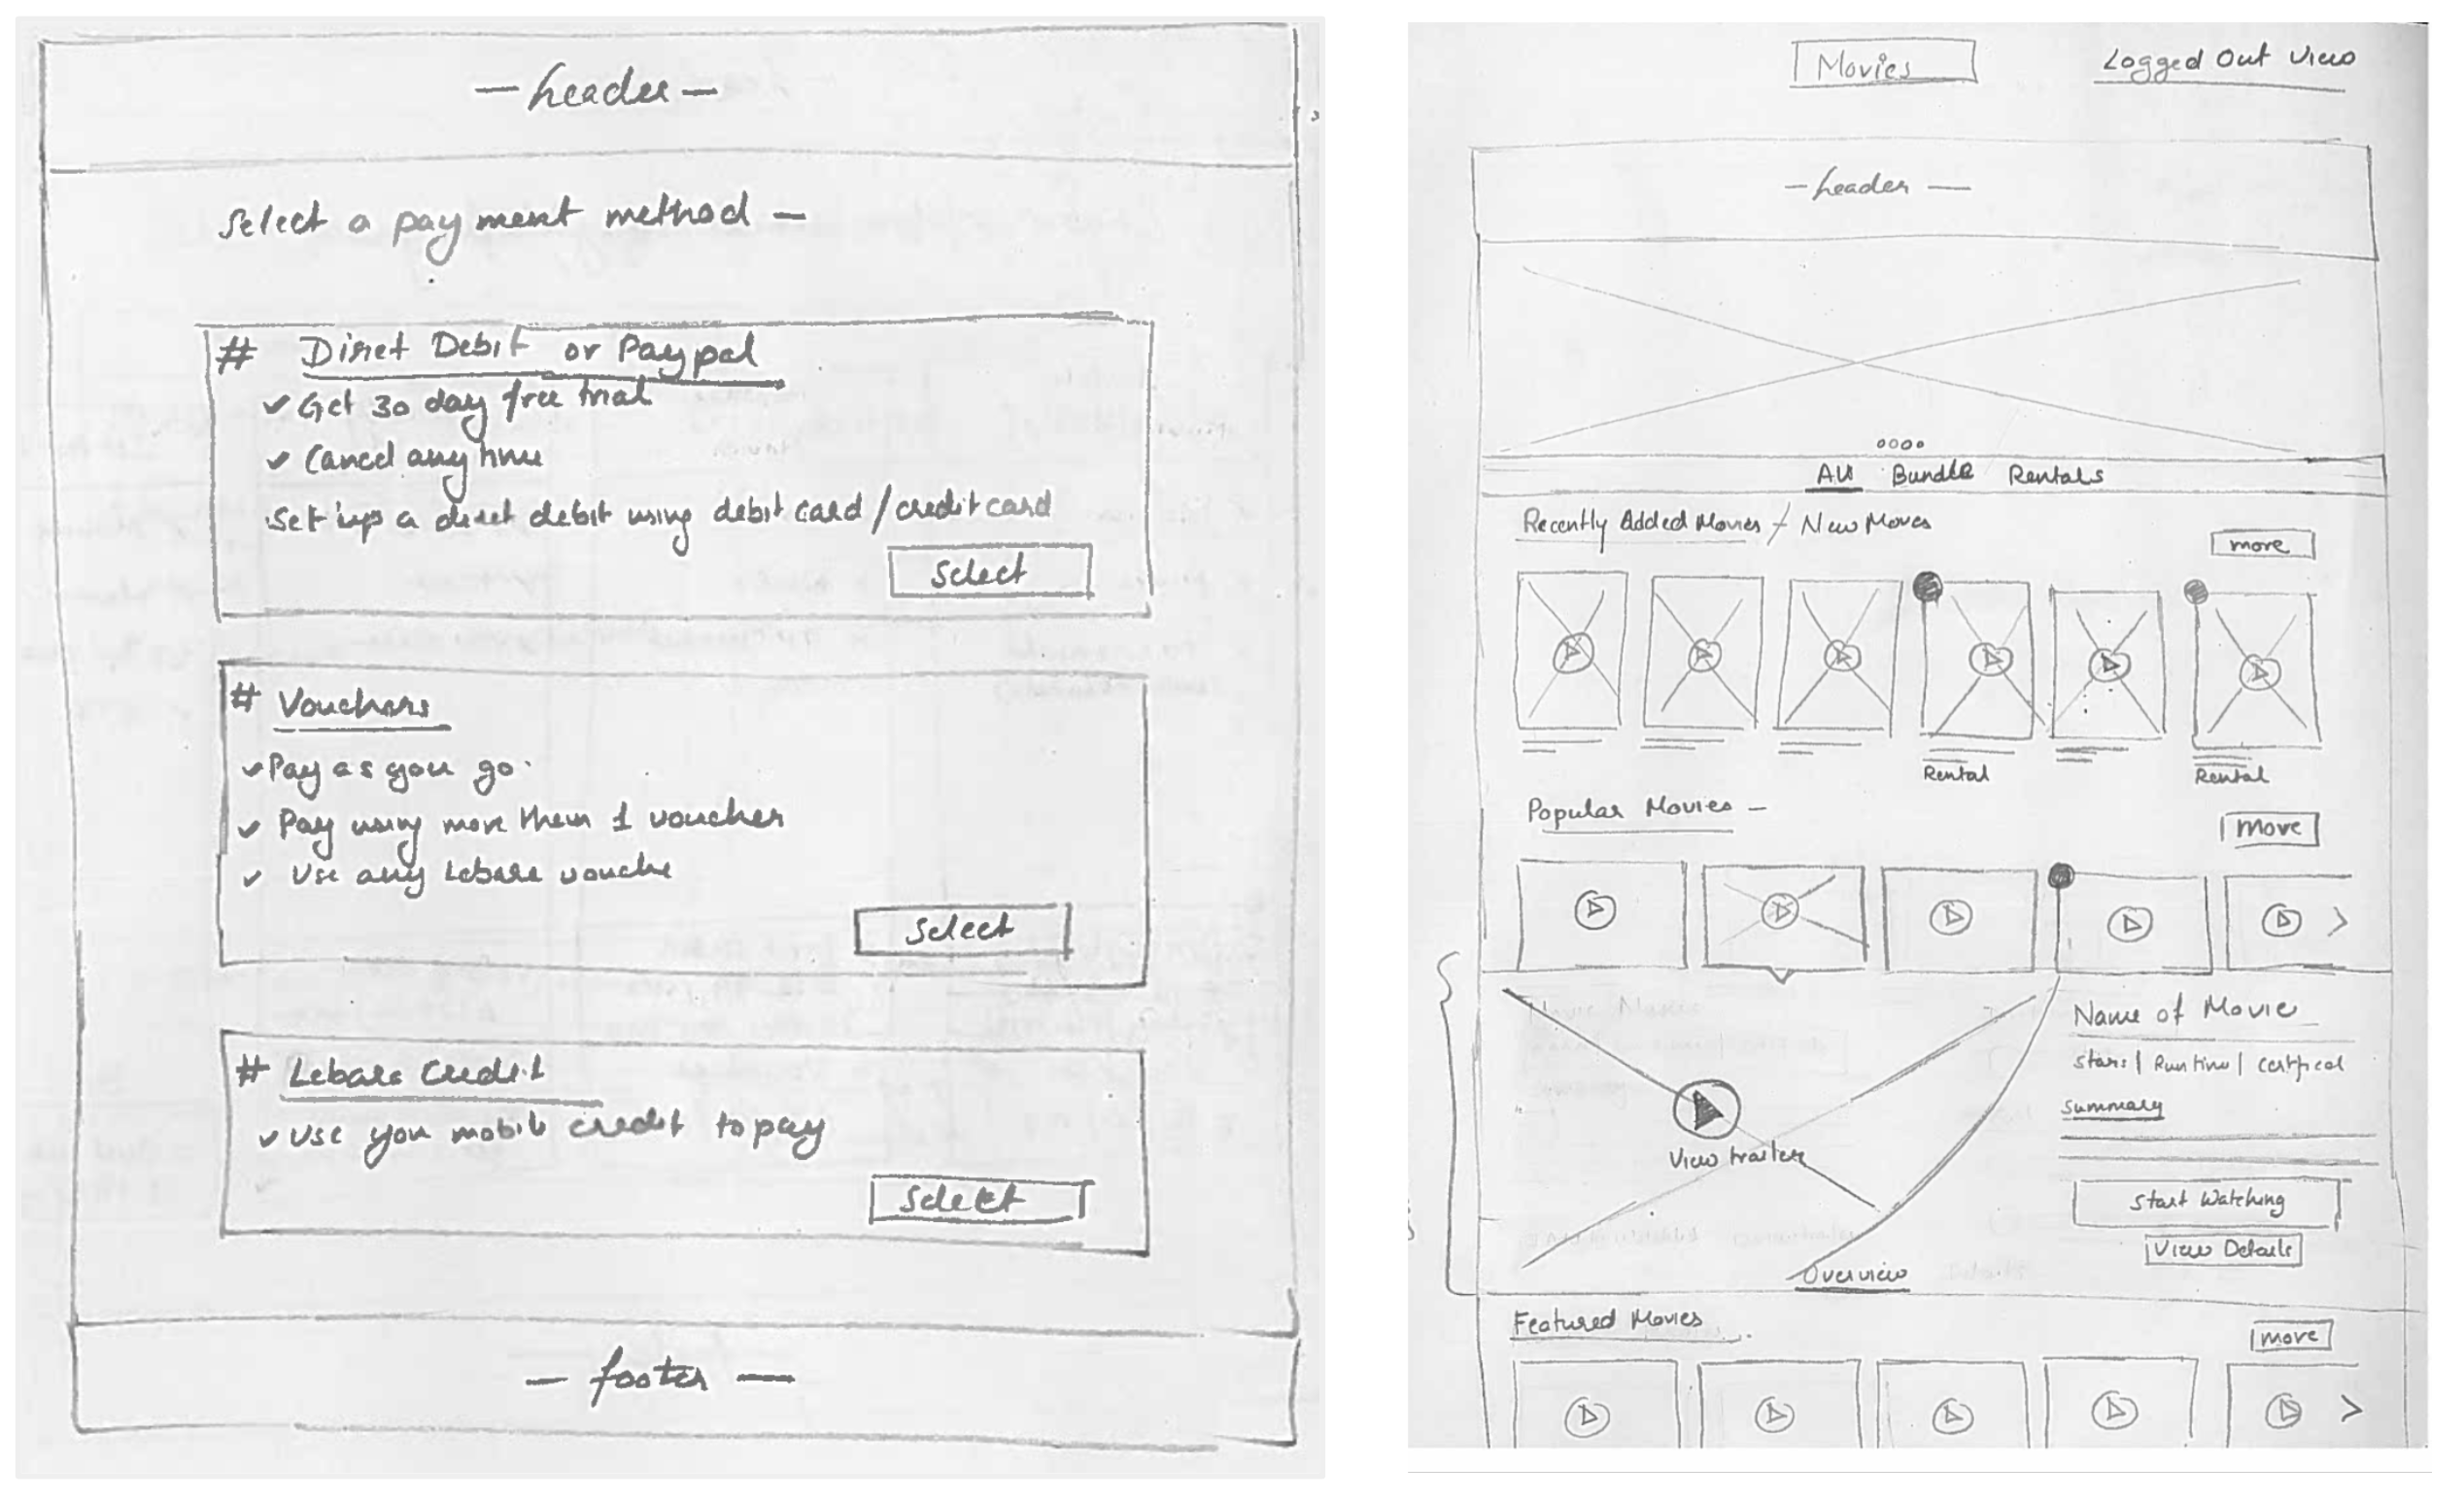 — header —
Select a payment method —
# Direct Debit or Paypal
✓ Get 30 day free trial
✓ Cancel any time
Set up a direct debit using debit card / credit card
Select
# Vouchers
✓ Pay as you go.
✓ Pay using more them 1 voucher
✓ Use any Lebara vouche
Select
# Lebara Credit
✓ Use you mobile credit to pay
Select
— footer —
Movies
Logged Out View
— header —
All Bundle Rentals
Recently Added Movies / New Moves
more
Rental
Rental
Popular Movies —
More
View trailer
Name of Movie
Stars | Runtime |
Summary
Start Watching
View Details
Overview
Featured Movies
more